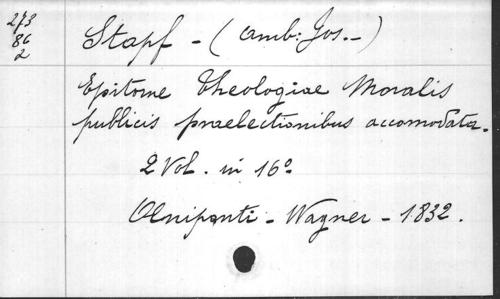 273
86
2
Stapf - (Amb: Jos. -)
Epitome Theologiae Moralis
publicis praelectionibus accomodata.
2 Vol. in 16º
Œniponti - Wagner - 1832.